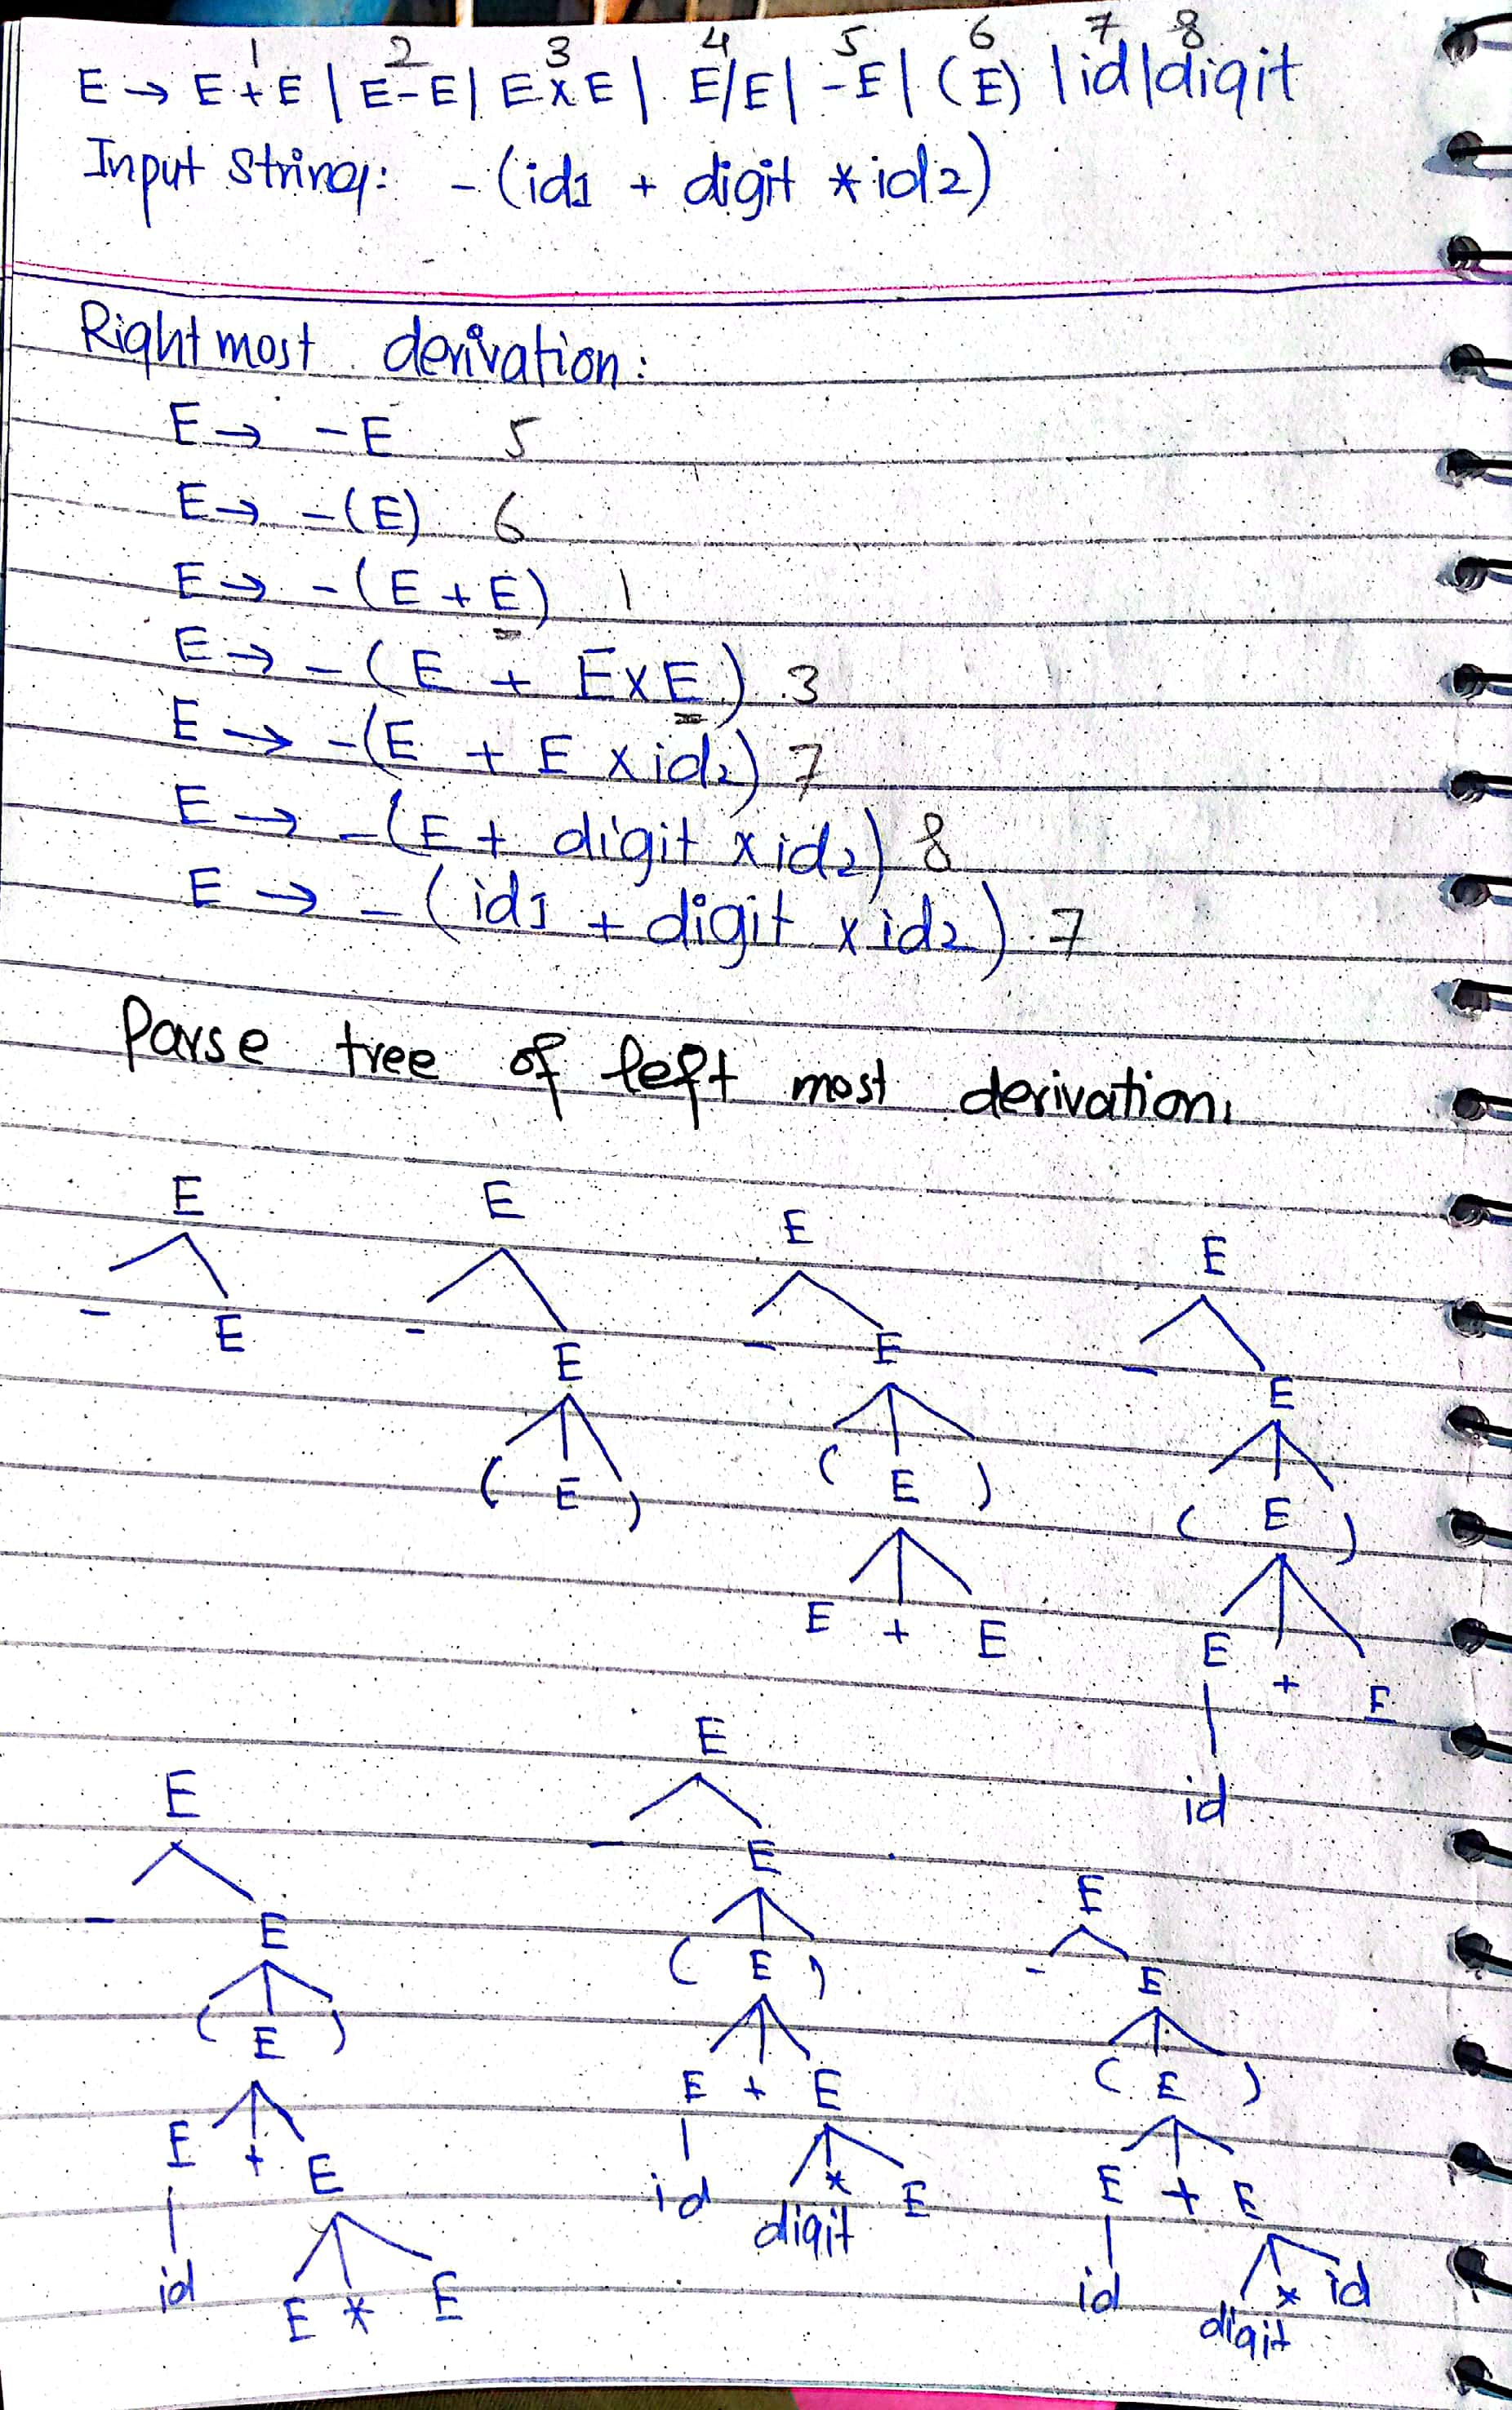 1 2 3 4 5 6 7 8
E → E+E | E-E | E×E | E/E | -E | (E) | id | digit
Input String: - (id1 + digit * id2)
Rightmost derivation:
E → -E 5
E → -(E) 6
E → -(E + E) 1
E → -(E + E×E) 3
E → -(E + E × id2) 7
E → -(E + digit × id2) 8
E → -(id1 + digit × id2) 7
Parse tree of left most derivation.
E E E E
- E - E - E - E
( E ) ( E ) ( E )
E + E E + E
id
E E E
- E - E - E
( E ) ( E ) ( E )
E + E E + E E + E
id E * E id digit * E id digit * id